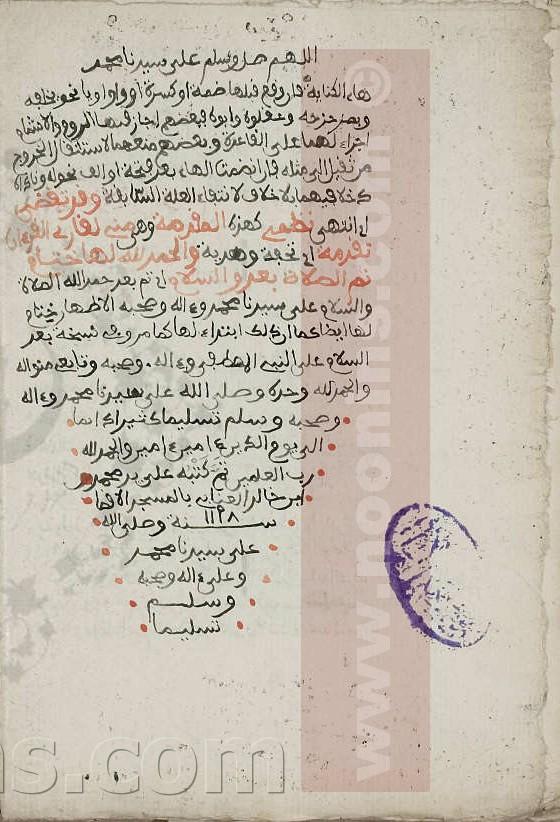 اللهم صل وسلم على سيدنا محمد
هاء الكناية فإن وقع قبلها ضمة أو كسرة أو واو أو يا نحو يخلفه
وبمزحزحه وعقلوه وأبوه فبعضهم أجاز فيها الروم والاشمام
إجراء لهما على القاعدة وبعضهم منعهما لاستثقال الخروج
من ثقيل إلى مثله فإن انضمت الهاء بعد فتحة أو ألف نحو له وناداه
دخلا فيهما بلا خلاف لانتفاء العلة السابقة وقد تقضى
أي انتهى نظمي هذه المقدمة وهي مني لقارئ القرءان
تقدمة أي تحفة وهدية والحمد لله لها ختام
ثم الصلاة بعد والسلام أي ثم بعد حمد الله الصلاة
والسلام على سيدنا محمد وءاله وصحبه الأطهار ختام
لها أيضا كما أن ذلك ابتداء لها كما مر وفي نسخة بعد
السلام على النبي المصطفى وءاله وصحبه وتابعي منواله
والحمد لله وحده وصلى الله على سيدنا محمد وءاله
وصحبه وسلم تسليما كثيرا دائما
إلى يوم الدين ءامين ءامين والحمد لله
رب العلمين تم كتبه علي بن محمد
ابن خالد بالمسجد
سنة ١١٩٨ وصلى الله
على سيدنا محمد
وعلى ءاله وصحبه
وسلم
تسليما
www.noonms.com ©
ns.com